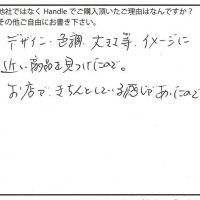 他社ではなく Handle でご購入頂いたご理由はなんですか？
その他ご自由にお書き下さい。
デザイン、色調、丈丈等、イメージに
近い商品を見つけたので。
お店が、きちんとしている感じがあったので